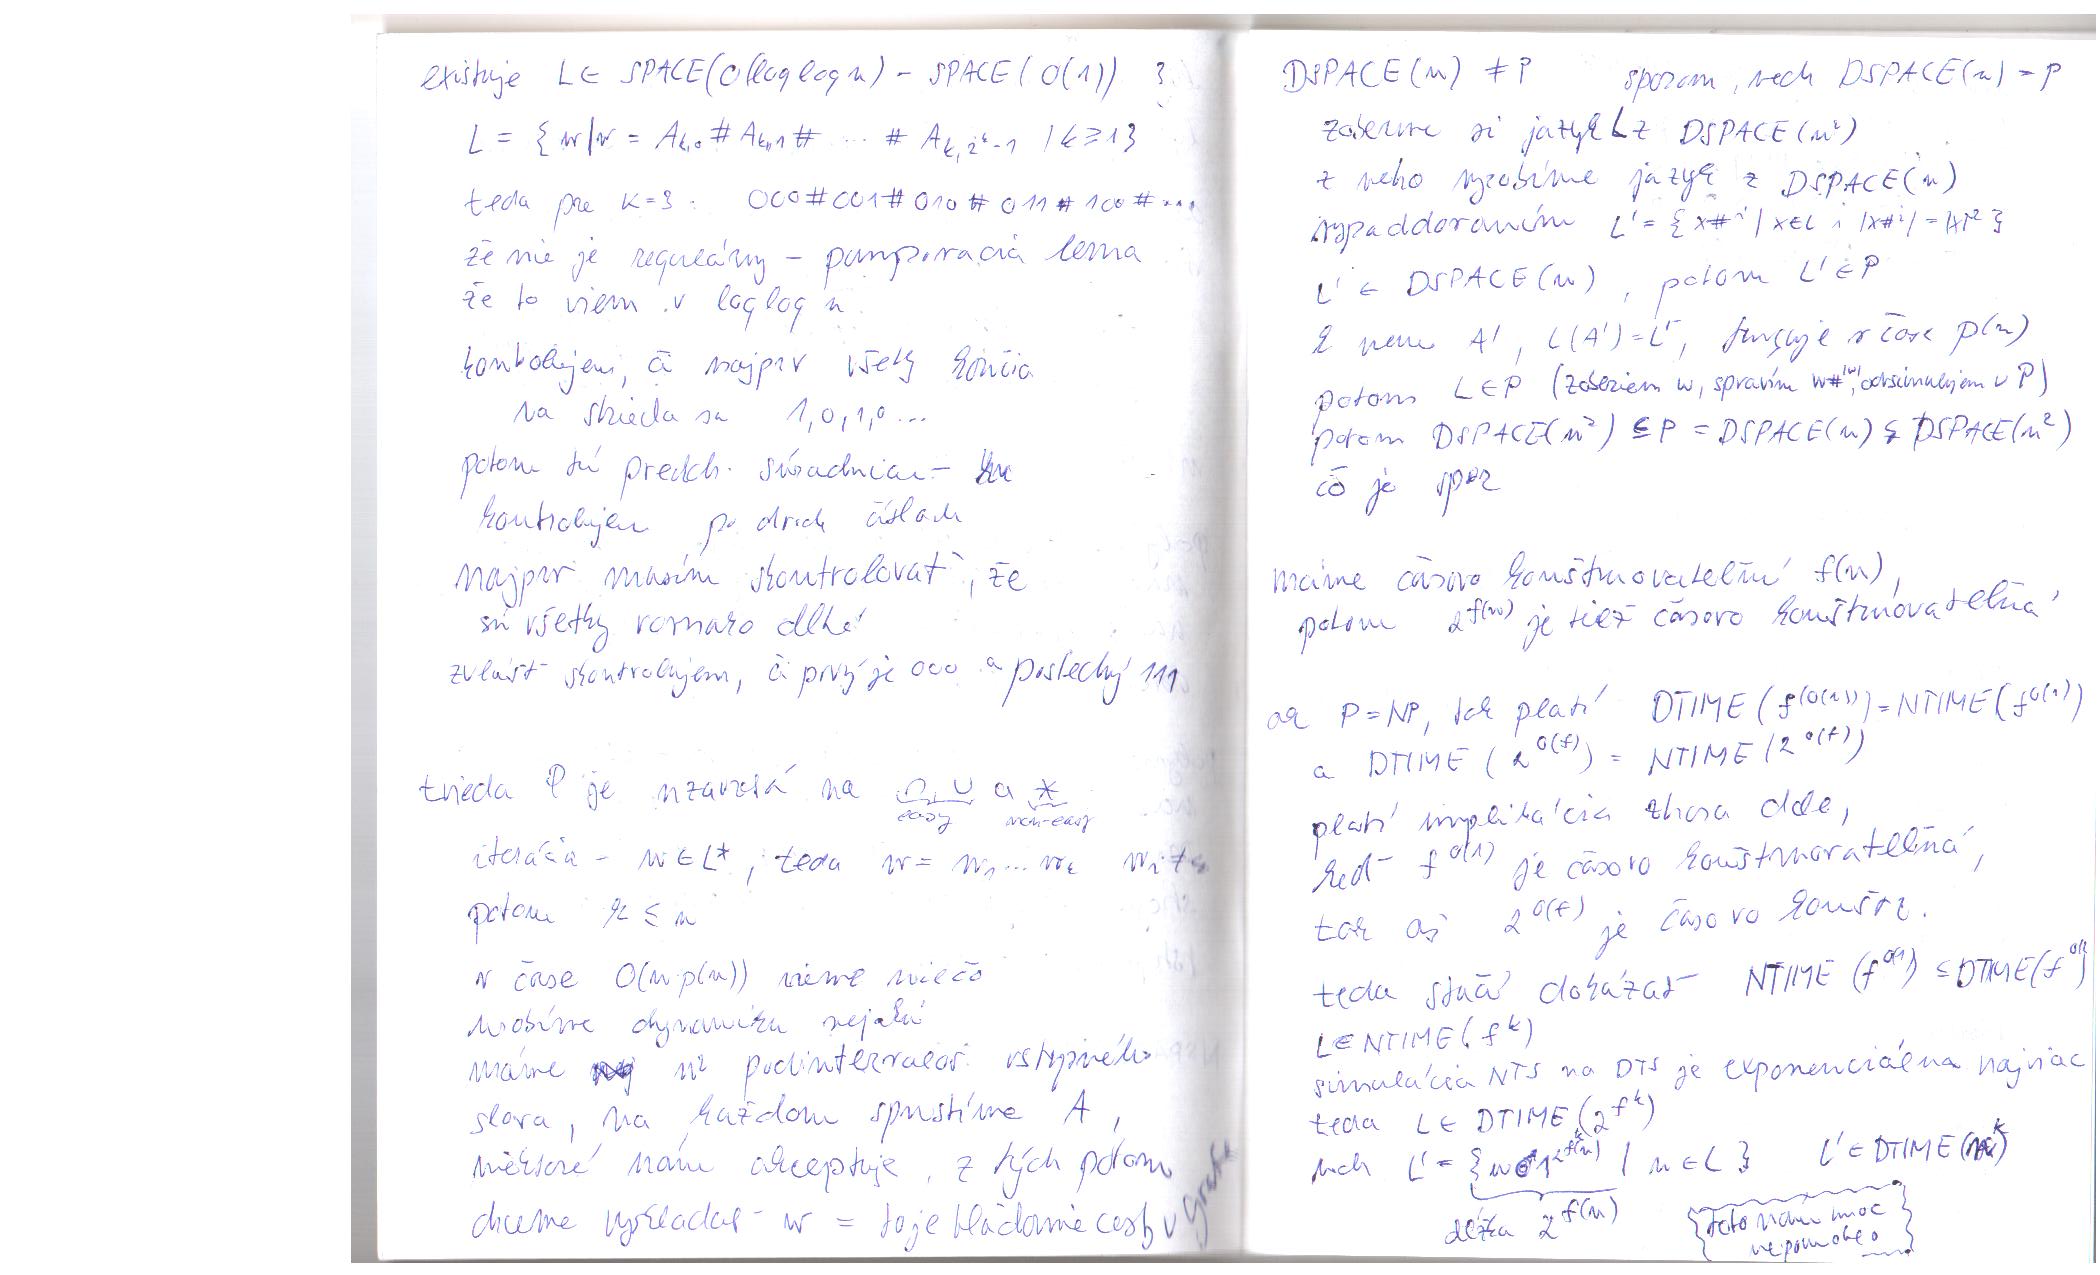 existuje L ∈ SPACE(O(loglog n) - SPACE(O(1)) ?
L = { w | w = A_{k,0} # A_{k,1} # ... # A_{k,2^k-1} | k ≥ 1 }
teda pre k=3. 000#001#010#011#100#...
že nie je regulárny - pumpovacia lema
že to viem v loglog n
kontrolujem, či najprv všetky končia
na striedačku 1,0,1,0...
potom tú predch.
kontrolujem po dvoch číslach
najprv musím skontrolovať, že
sú všetky rovnako dlhé
zvlášť skontrolujem, či prvý je 000 a posledný 111
trieda P je uzavretá na ∩, ∪ a *
easy non-easy
iterácia - w ∈ L*, teda w = w₁...w_k w_i ≠ ε
potom k ≤ n
v čase O(n·p(n)) vieme niečo
urobíme dynamiku nejakú
máme n² podintervalov vstupného
slova, na každom spustíme A,
niektoré nám akceptuje, z tých potom
chceme vyskladať w = to je hľadanie cesty v grafe
DSPACE(n) ≠ P sporom, nech DSPACE(n) = P
zoberme si jazyk L z DSPACE(n²)
z neho vyrobíme jazyk z DSPACE(n)
vypaddovaním L' = { x#^i | x∈L ; |x#^i| = |x|² }
L' ∈ DSPACE(n), potom L' ∈ P
k nemu A', L(A') = L', funguje v čase p(n)
potom L∈P (zoberiem w, spravím w#^{|w|}, odsimulujem v P)
potom DSPACE(n²) ⊆ P = DSPACE(n) ⊊ DSPACE(n²)
čo je spor
máme časovo konštruovateľnú f(n),
potom 2^{f(n)} je tiež časovo konštruovateľná
ak P = NP, tak platí DTIME(f^{(O(1))}) = NTIME(f^{O(1)})
a DTIME(2^{O(f)}) = NTIME(2^{O(f)})
platí implikácia zhora dole,
keď f^{O(1)} je časovo konštruovateľná,
tak aj 2^{O(f)} je časovo konštr.
teda stačí dokázať NTIME(f^{O(1)}) ⊆ DTIME(f^{O(1)})
L∈NTIME(f^k)
simulácia NTS na DTS je exponenciálna najviac
teda L ∈ DTIME(2^{f^k})
nech L' = { w01^{2^{f^k(n)}} | w ∈ L } L' ∈ DTIME(n^k)
dĺžka 2^{f(n)}
toto nám moc
nepomohlo